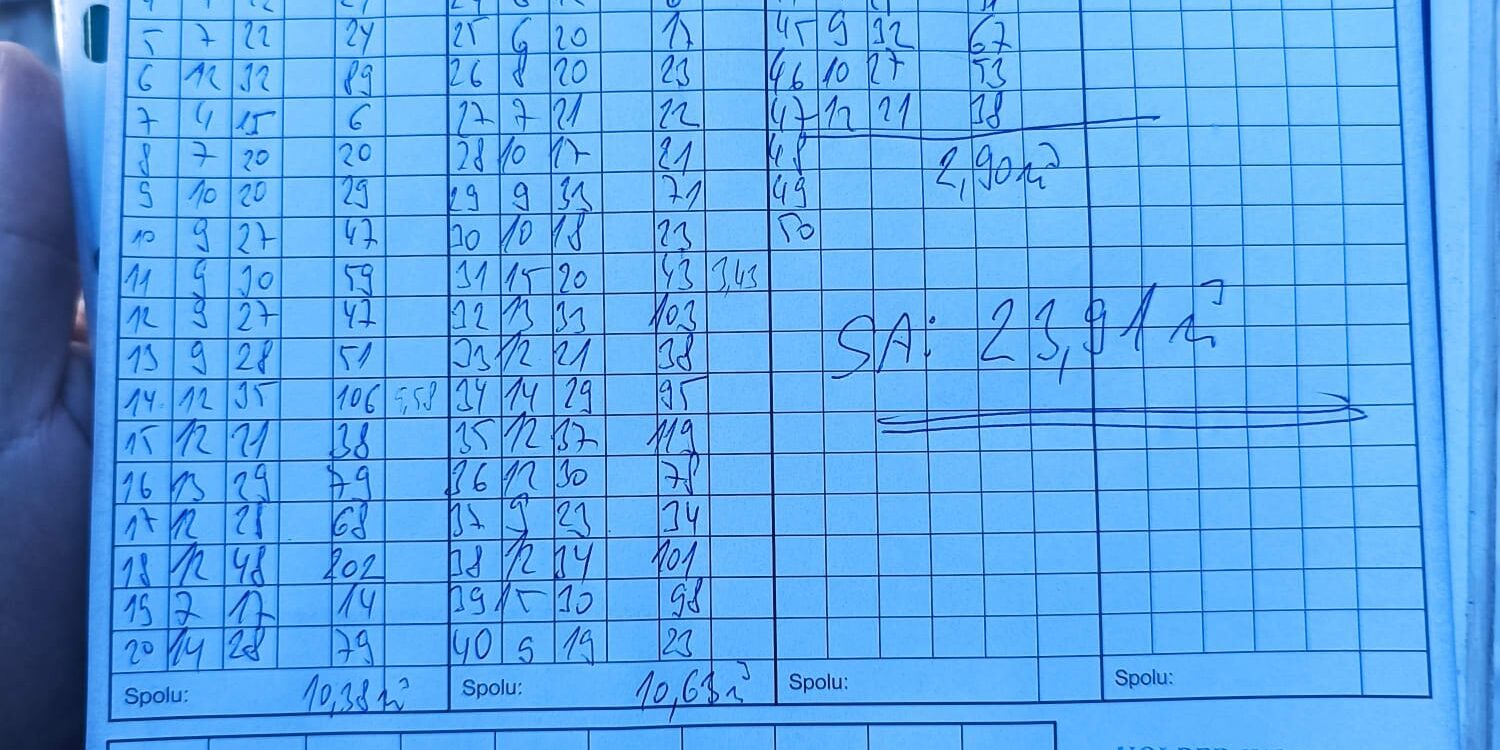 5 7 22 24 25 6 20 17 45 9 32 67
6 12 32 89 26 8 20 23 46 10 27 53
7 4 15 6 27 7 21 22 47 12 21 38
8 7 20 20 28 10 17 21 48 2,90 m³
9 10 20 29 29 9 33 71 49
10 9 27 47 30 10 18 23 50
11 9 30 59 31 15 20 43 3,43
12 9 27 47 32 13 33 103
SA: 23,91 m³
13 9 28 51 33 12 21 38
14 12 35 106 5,58 34 14 29 95
15 12 21 38 35 12 37 119
16 13 29 79 36 12 30 78
17 12 28 68 37 9 23 34
18 12 48 202 38 12 34 101
19 7 17 14 39 15 30 98
20 14 28 79 40 9 19 23
Spolu: 10,38 m³ Spolu: 10,63 m³ Spolu: Spolu: